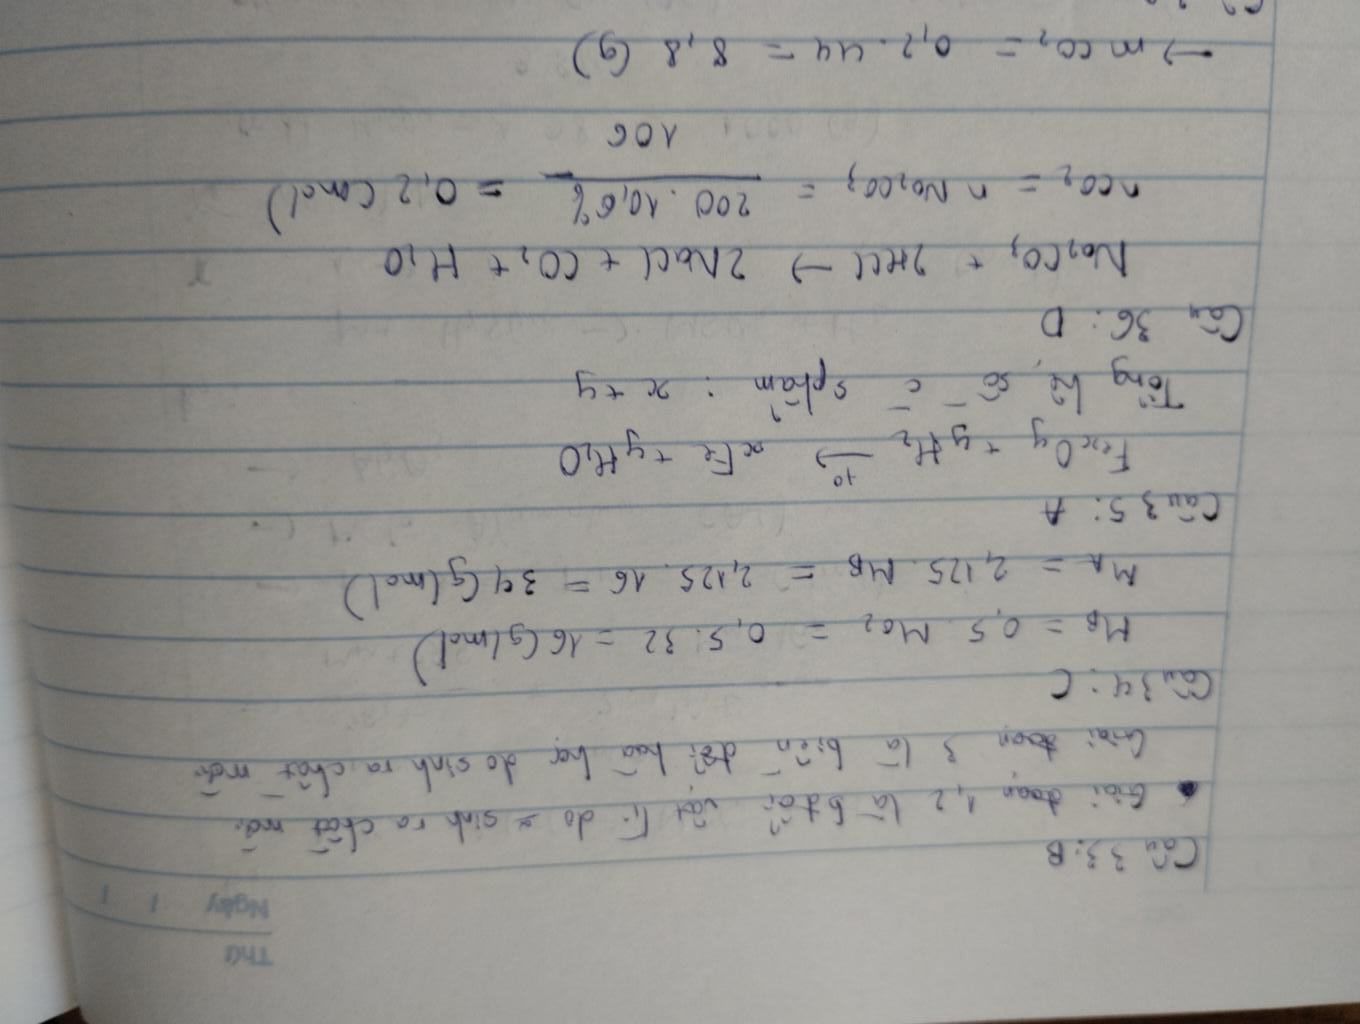 Thứ
Ngày / /
Câu 33: B
Giai đoạn 1,2 là b đổi vật lí do sinh ra chất mới.
Giai đoạn 3 là biến đổi hoá học do sinh ra chất mới.
Câu 34: C
MB = 0,5. MO2 = 0,5.32 = 16 (g/mol)
MA = 2,125. MB = 2,125. 16 = 34 (g/mol)
Câu 35: A
FexOy + yH2 —t°→ xFe + yH2O
Tổng hệ số c sphẩm : x + y
Câu 36: D
Na2CO3 + 2HCl → 2NaCl + CO2 + H2O
nCO2 = n Na2CO3 = 200.10,6% / 106 = 0,2 (mol)
→ m CO2 = 0,2.44 = 8,8 (g)